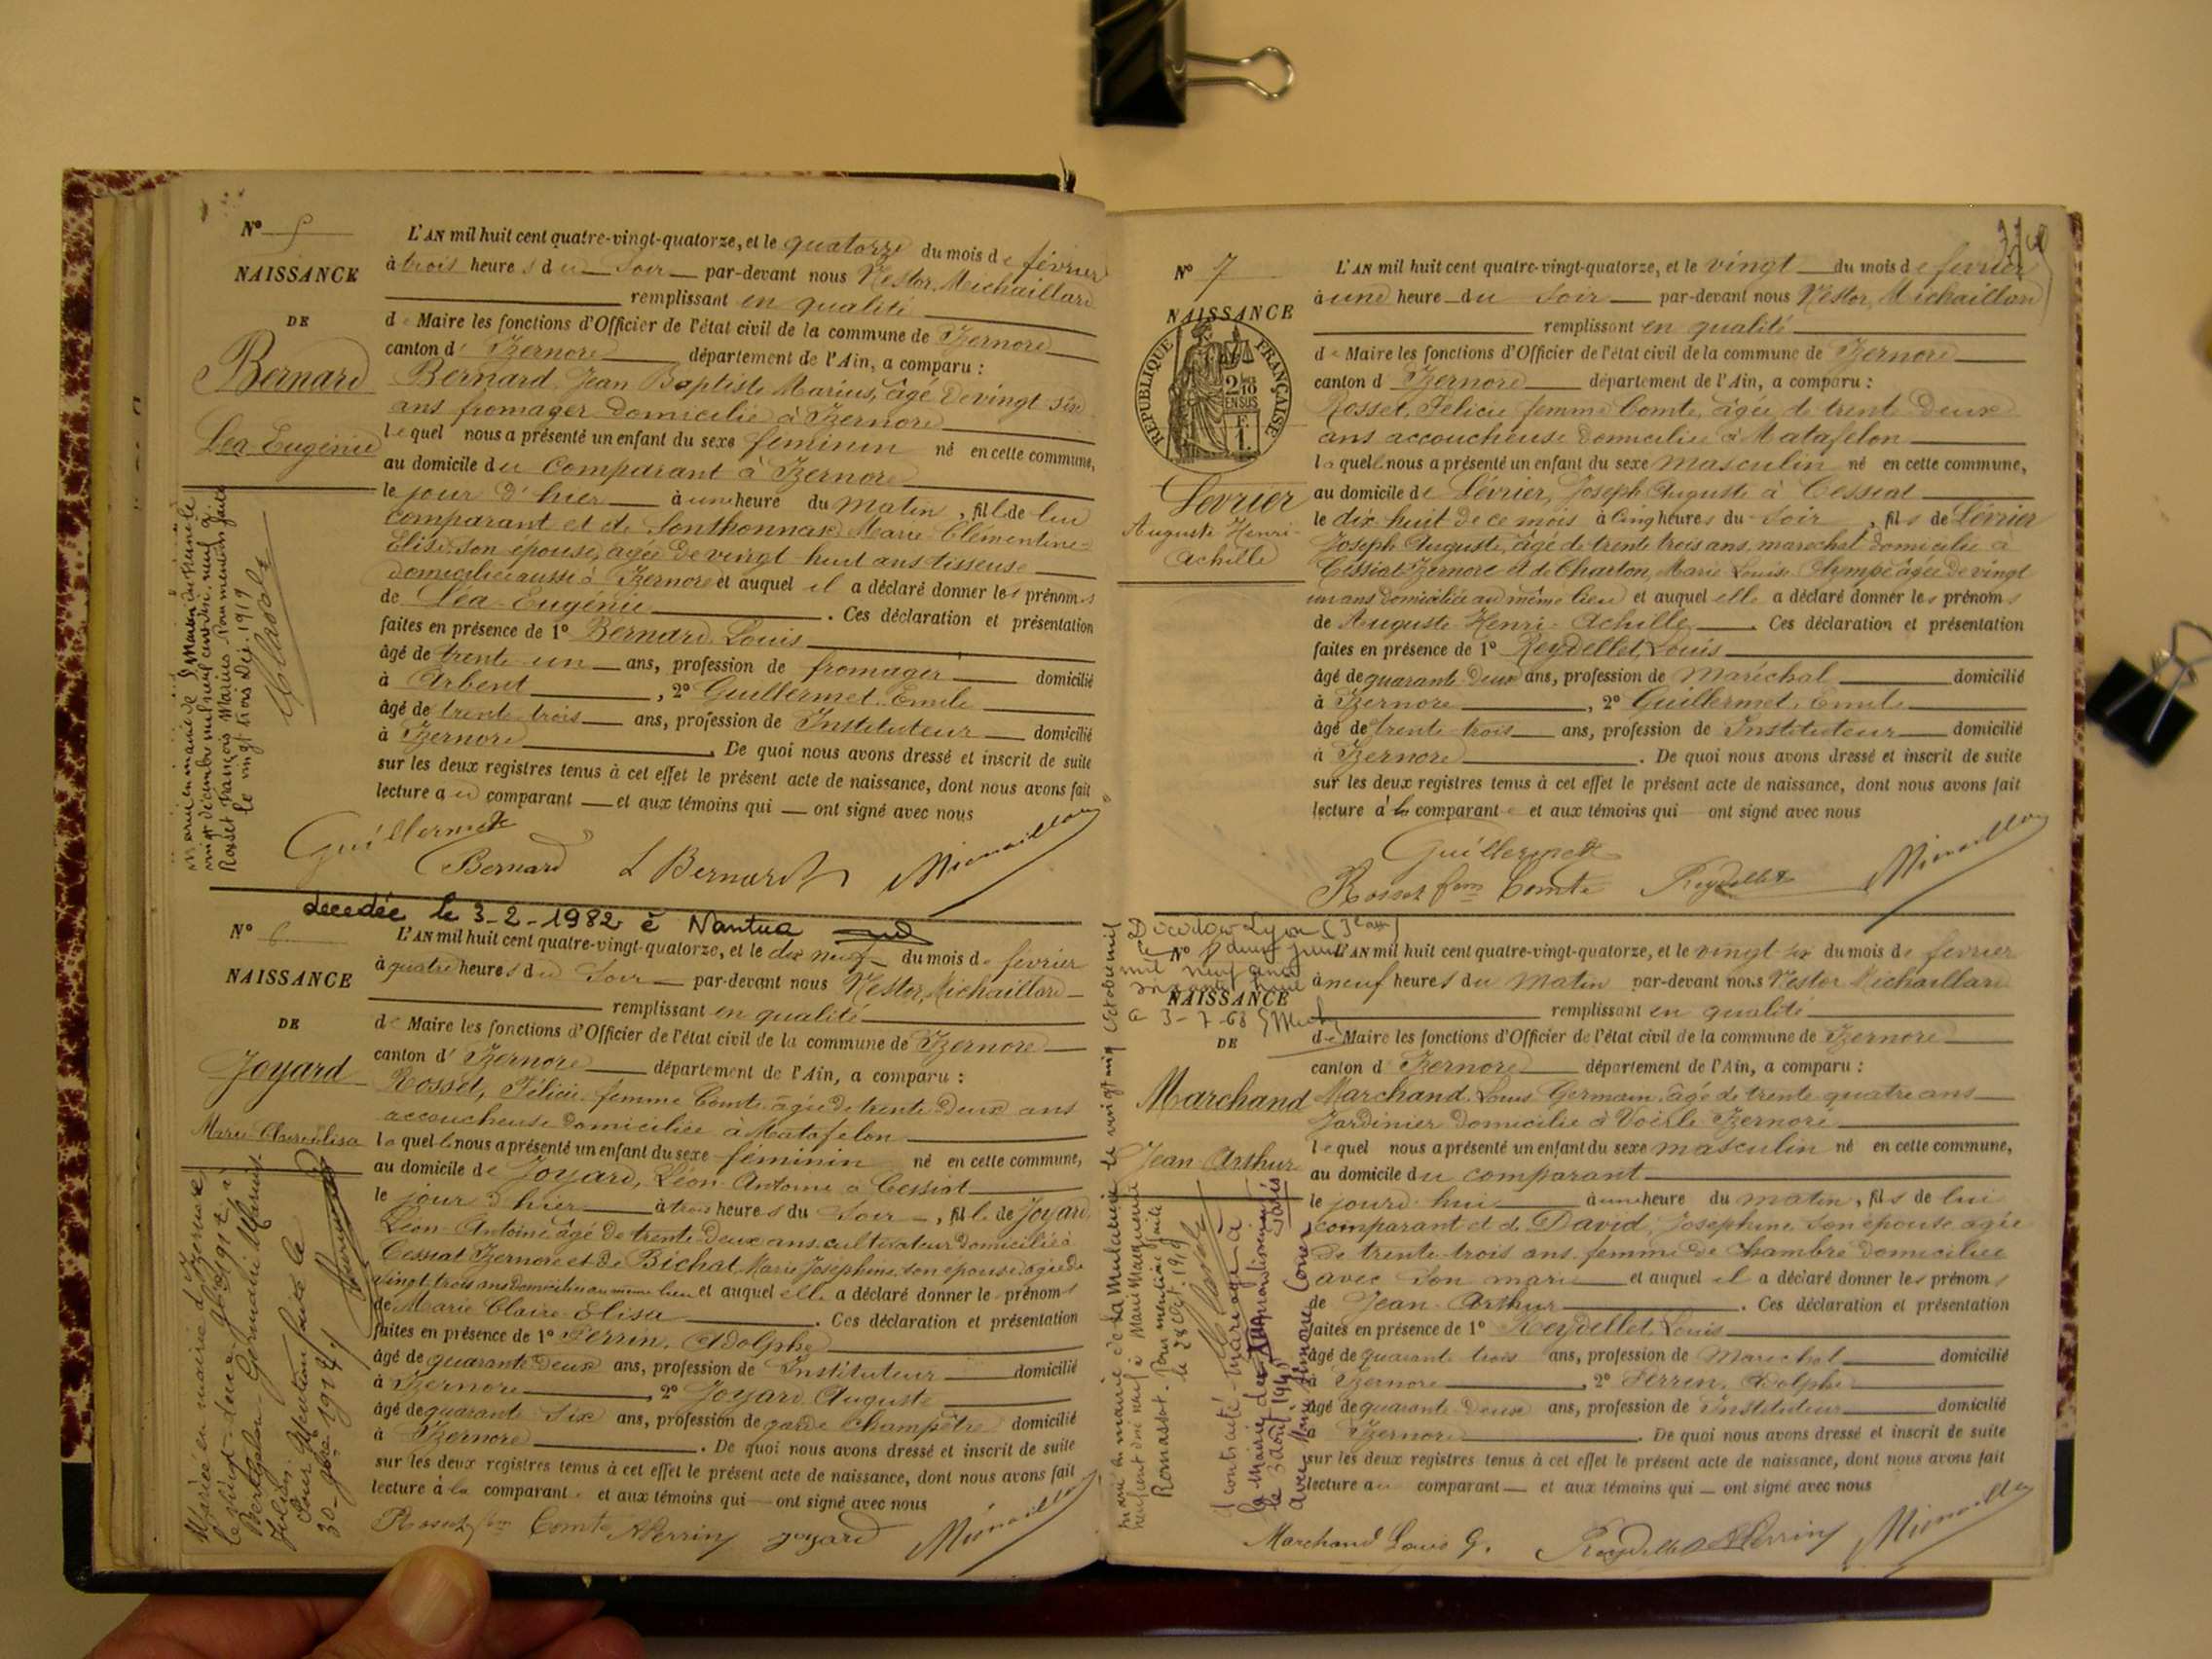 N° 5
NAISSANCE
DE
Bernard
Léa Eugénie
L'AN mil huit cent quatre-vingt-quatorze, et le quatorze du mois de février
à trois heures du Soir par-devant nous Nestor Michaillard
remplissant en qualité
de Maire les fonctions d'Officier de l'état civil de la commune de Izernore
canton d' Izernore département de l'Ain, a comparu :
Bernard Jean Baptiste Marius, âgé de vingt six
ans fromager domicilié à Izernore
lequel nous a présenté un enfant du sexe féminin né en cette commune,
au domicile du comparant à Izernore
le jour d'hier à une heure du matin, fille de lui
comparant et de Sonthonnax Marie Clémentine
Elise son épouse, âgée de vingt huit ans tisseuse
domiciliée aussi à Izernore et auquel il a déclaré donner les prénoms
de Léa Eugénie. Ces déclaration et présentation
faites en présence de 1° Bernard Louis
âgé de trente un ans, profession de fromager domicilié
à Arbent, 2° Guillermet Emile
âgé de trente trois ans, profession de Instituteur domicilié
à Izernore. De quoi nous avons dressé et inscrit de suite
sur les deux registres tenus à cet effet le présent acte de naissance, dont nous avons fait
lecture au comparant et aux témoins qui ont signé avec nous
Guillermet
Bernard L Bernard Michaillard
vingt décembre mil neuf cent dix neuf à
Rosset François Marius. Pour mention faite
le vingt trois Déc. 1919
décédée le 3-2-1982 à Nantua
N° 6
NAISSANCE
DE
Joyard
Marie Claire Elisa
L'AN mil huit cent quatre-vingt-quatorze, et le dix neuf du mois de février
à quatre heures du Soir par-devant nous Nestor Michaillard
remplissant en qualité
de Maire les fonctions d'Officier de l'état civil de la commune de Izernore
canton d' Izernore département de l'Ain, a comparu :
Rosset, Félicie femme Comte âgée de trente deux ans
accoucheuse domiciliée à Matafelon
laquelle nous a présenté un enfant du sexe féminin né en cette commune,
au domicile de Joyard, Léon Antoine à Cessiat
le jour d'hier à trois heures du Soir, fille de Joyard
Léon Antoine âgé de trente-deux ans cultivateur domicilié à
Cessiat Izernore et de Bichat Marie Josephine, son épouse, âgée de
vingt trois ans domiciliée au même lieu et auquel elle a déclaré donner les prénoms
de Marie Claire Elisa. Ces déclaration et présentation
faites en présence de 1° Perrin, Adolphe
âgé de quarante deux ans, profession de Instituteur domicilié
à Izernore, 2° Joyard Auguste
âgé de quarante six ans, profession de garde champêtre domicilié
à Izernore. De quoi nous avons dressé et inscrit de suite
sur les deux registres tenus à cet effet le présent acte de naissance, dont nous avons fait
lecture à la comparante et aux témoins qui ont signé avec nous
Rosset fem Comte APerrin Joyard Michaillard
Mariée en mairie d'Izernore
Germain Marius
Julien.
Pour Mention faite le
30 9bre 1924
N° 7
NAISSANCE
REPUBLIQUE FRANÇAISE
2/10 EN SUS
Lévrier
Auguste Henri
Achille
L'AN mil huit cent quatre-vingt-quatorze, et le vingt du mois de février
à une heure du Soir par-devant nous Nestor Michaillard
remplissant en qualité
de Maire les fonctions d'Officier de l'état civil de la commune de Izernore
canton d Izernore département de l'Ain, a comparu :
Rosset, Félicie femme Comte, âgée de trente deux
ans accoucheuse domiciliée à Matafelon
laquelle nous a présenté un enfant du sexe masculin né en cette commune,
au domicile de Lévrier, Joseph Auguste à Cessiat
le dix huit de ce mois à cinq heures du Soir, fils de Lévrier
Joseph Auguste, âgé de trente trois ans, maréchal domicilié à
Cessiat Izernore et de Charton, Marie Louise Olympe âgée de vingt
un ans domiciliée au même lieu et auquel elle a déclaré donner les prénoms
de Auguste Henri Achille. Ces déclaration et présentation
faites en présence de 1° Reydellet, Louis
âgé de quarante deux ans, profession de Maréchal domicilié
à Izernore, 2° Guillermet, Emile
âgé de trente trois ans, profession de Instituteur domicilié
à Izernore. De quoi nous avons dressé et inscrit de suite
sur les deux registres tenus à cet effet le présent acte de naissance, dont nous avons fait
lecture à la comparante et aux témoins qui ont signé avec nous
Guillermet
Rosset fem Comte Reydellet Michaillard
N° 8
NAISSANCE
DE
Marchand
Jean Arthur
Décédé à Lyon (3e arr)
le deux juin
mil neuf cent
soixante huit
3-7-68
L'AN mil huit cent quatre-vingt-quatorze, et le vingt six du mois de février
à neuf heures du Matin par-devant nous Nestor Michaillard
remplissant en qualité
de Maire les fonctions d'Officier de l'état civil de la commune de Izernore
canton d' Izernore département de l'Ain, a comparu :
Marchand, Louis Germain, âgé de trente quatre ans
Jardinier domicilié à Voerle Izernore
lequel nous a présenté un enfant du sexe masculin né en cette commune,
au domicile du comparant
le jourd'hui à une heure du matin, fils de lui
comparant et de David, Josephine son épouse âgée
de trente-trois ans, femme de chambre domiciliée
avec son mari et auquel il a déclaré donner les prénoms
de Jean-Arthur. Ces déclaration et présentation
faites en présence de 1° Reydellet, Louis
âgé de quarante trois ans, profession de Maréchal domicilié
à Izernore, 2° Perrin, Adolphe
âgé de quarante deux ans, profession de Instituteur domicilié
à Izernore. De quoi nous avons dressé et inscrit de suite
sur les deux registres tenus à cet effet le présent acte de naissance, dont nous avons fait
lecture au comparant et aux témoins qui ont signé avec nous
Marchand Louis G. Reydellet APerrin Michaillard
Marié en mairie de La Mulatière le vingt cinq Octobre mil
neuf cent dix neuf à Marie Marguerite
Romassot. Pour mention faite
le 28 Oct. 1919
A contracté mariage à